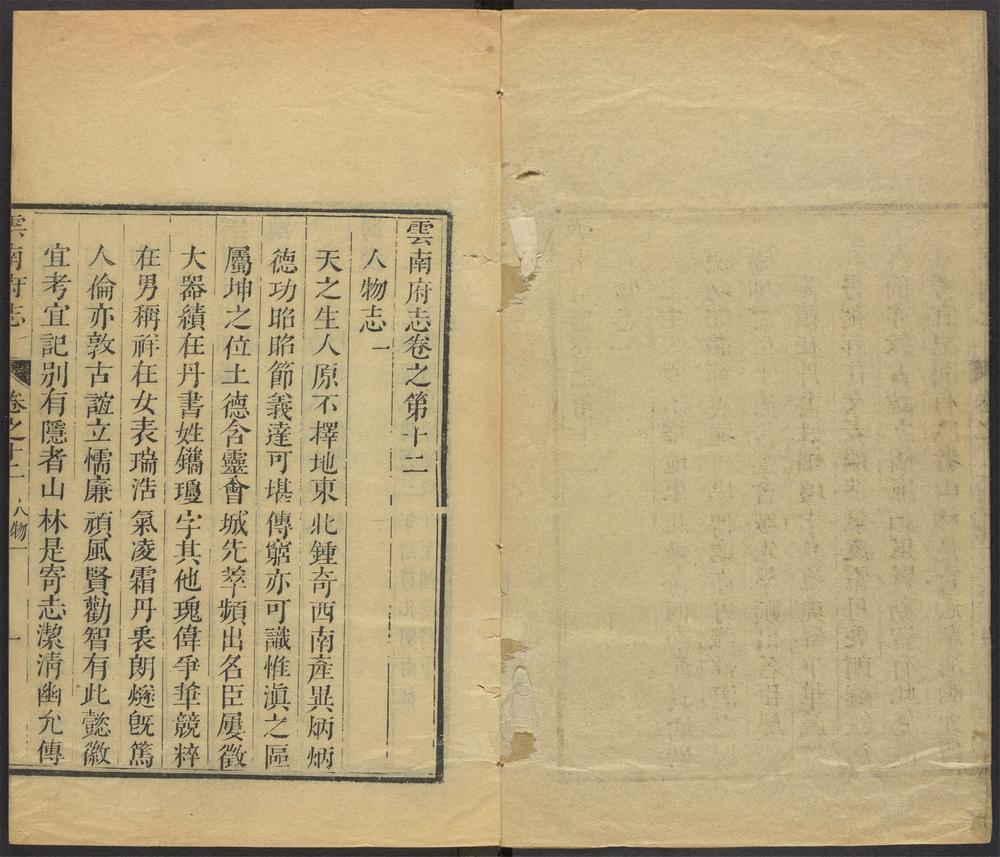 雲南府志卷之第十二
人物志一
天之生人原不擇地東北鍾奇西南產異炳炳
德功昭昭節義達可堪傳窮亦可識惟滇之區
屬坤之位土德含靈會城先萃頻出名臣屢徵
大器績在丹書姓鐫瓊字其他瑰偉爭華競粹
在男稱祥在女表瑞浩氣凌霜丹衷朗燧旣篤
人倫亦敦古誼立懦廉頑風賢勸智有此懿徽
宜考宜記別有隱者山林是寄志潔淸幽允傳
雲南府志
卷之十二 人物一
一